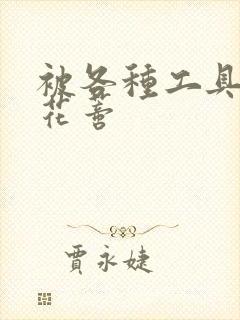 被各種工具
花蒂
賈永婕